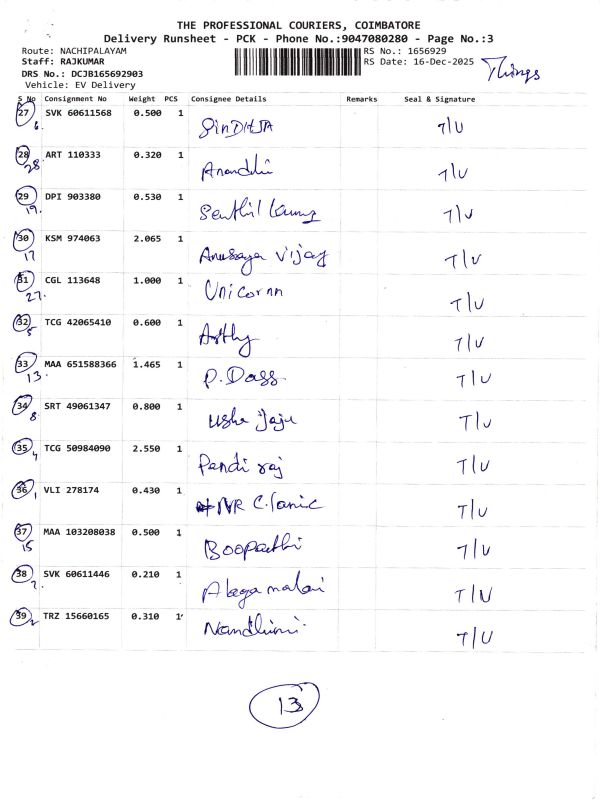 THE PROFESSIONAL COURIERS, COIMBATORE
Delivery Runsheet - PCK - Phone No.:9047080280 - Page No.:3
Route: NACHIPALAYAM RS No.: 1656929
Staff: RAJKUMAR RS Date: 16-Dec-2025 Things
DRS No.: DCJB165692903
Vehicle: EV Delivery
S No Consignment No Weight PCS Consignee Details Remarks Seal & Signature
27 SVK 60611568 0.500 1 T/U
6.
28 ART 110333 0.320 1 T/U
28.
29 DPI 903380 0.530 1 Senthil Kumar T/U
19.
30 KSM 974063 2.065 1 Anusaya Vijay T/U
17
31 CGL 113648 1.000 1 Unicornn T/U
27.
32 TCG 42065410 0.600 1 T/U
5
33 MAA 651588366 1.465 1 P. Dass T/U
13.
34 SRT 49061347 0.800 1 Usha Jaju T/U
8.
35 TCG 50984090 2.550 1 Pandi raj T/U
4
36 VLI 278174 0.430 1 NR Clanic T/U
1
37 MAA 103208038 0.500 1 Boopathi T/U
15
38 SVK 60611446 0.210 1 Alagamalai T/U
39 TRZ 15660165 0.310 1 Nandhini T/U
2
13